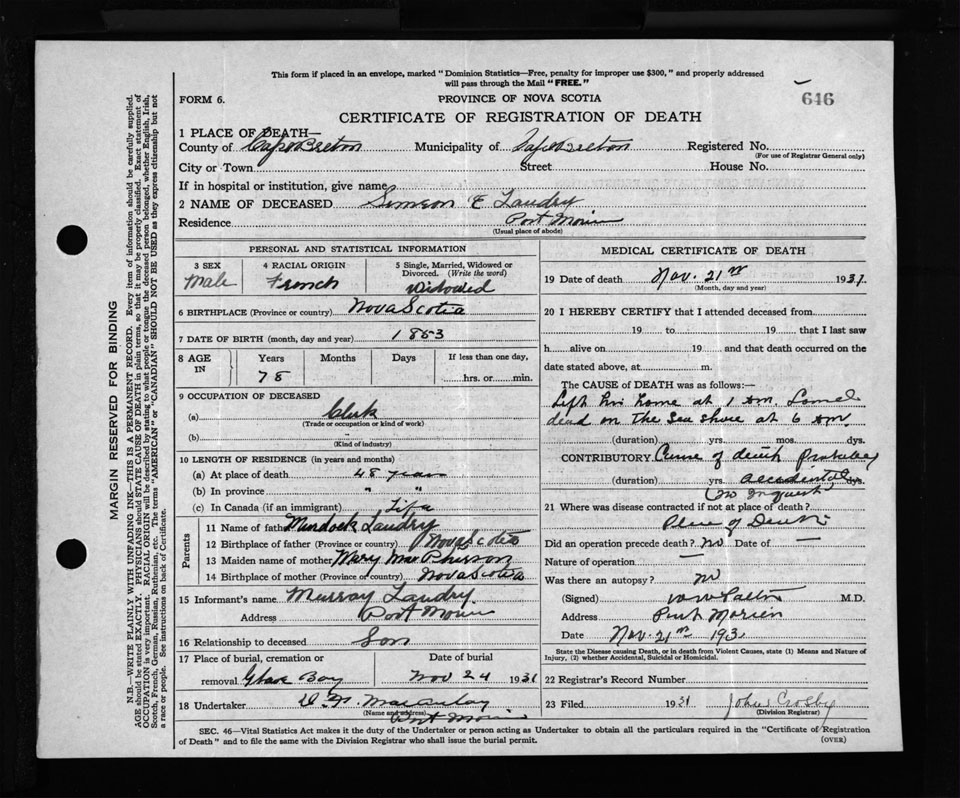 This form if placed in an envelope, marked "Dominion Statistics—Free, penalty for improper use $300," and properly addressed
will pass through the Mail "FREE."
FORM 6.
PROVINCE OF NOVA SCOTIA
646
CERTIFICATE OF REGISTRATION OF DEATH
1 PLACE OF DEATH—
County of Cape Breton Municipality of Cape Breton Registered No.
(For use of Registrar General only)
City or Town Street House No.
If in hospital or institution, give name
2 NAME OF DECEASED Simeon E Landry
Residence Port Morien
(Usual place of abode)
PERSONAL AND STATISTICAL INFORMATION
3 SEX 4 RACIAL ORIGIN 5 Single, Married, Widowed or Divorced. (Write the word)
Male French Widowed
6 BIRTHPLACE (Province or country) Nova Scotia
7 DATE OF BIRTH (month, day and year) 1853
8 AGE IN Years Months Days If less than one day,
78 hrs. or min.
9 OCCUPATION OF DECEASED
(a) Clerk
(Trade or occupation or kind of work)
(b)
(Kind of industry)
10 LENGTH OF RESIDENCE (in years and months)
(a) At place of death 48 years
(b) In province " "
(c) In Canada (if an immigrant) Life
Parents
11 Name of father Murdock Landry
12 Birthplace of father (Province or country) Nova Scotia
13 Maiden name of mother Mary MacPherson
14 Birthplace of mother (Province or country) Nova Scotia
15 Informant's name Murray Landry
Address Port Morien
16 Relationship to deceased Son
17 Place of burial, cremation or Date of burial
removal Glace Bay Nov 24 1931
18 Undertaker Macaulay
(Name and address)
Port Morien
MEDICAL CERTIFICATE OF DEATH
19 Date of death Nov. 21 1931
(Month, day and year)
20 I HEREBY CERTIFY that I attended deceased from
19 to 19 that I last saw
h alive on 19 and that death occurred on the
date stated above, at m.
The CAUSE of DEATH was as follows:—
Left his home at 1 am. Found
dead on the sea shore at 6 am.
(duration) yrs. mos. dys.
CONTRIBUTORY Cause of death probably
(duration) yrs. accidental dys.
(no inquest
21 Where was disease contracted if not at place of death?
Place of Death
Did an operation precede death? no Date of —
Nature of operation —
Was there an autopsy? no
(Signed) M.D.
Address Port Morien
Date Nov. 21 193
State the Disease causing Death, or in death from Violent Causes, state (1) Means and Nature of
Injury, (2) whether Accidental, Suicidal or Homicidal.
22 Registrar's Record Number
23 Filed 1931 John Crosby
(Division Registrar)
SEC. 46—Vital Statistics Act makes it the duty of the Undertaker or person acting as Undertaker to obtain all the particulars required in the "Certificate of Registration
of Death" and to file the same with the Division Registrar who shall issue the burial permit. (OVER)
MARGIN RESERVED FOR BINDING
N.B.—WRITE PLAINLY WITH UNFADING INK—THIS IS A PERMANENT RECORD. Every item of information should be carefully supplied.
AGE should be stated EXACTLY. PHYSICIANS should STATE CAUSE OF DEATH in plain terms, so that it may be properly classified. Exact statement of
OCCUPATION is very important. RACIAL ORIGIN will be described by stating to what people or tongue the deceased person belonged, whether English, Irish,
Scotch, French, German, Russian, Ruthenian, etc. The terms "AMERICAN" or "CANADIAN" SHOULD NOT BE USED as they express citizenship but not
a race or people. See instructions on back of Certificate.